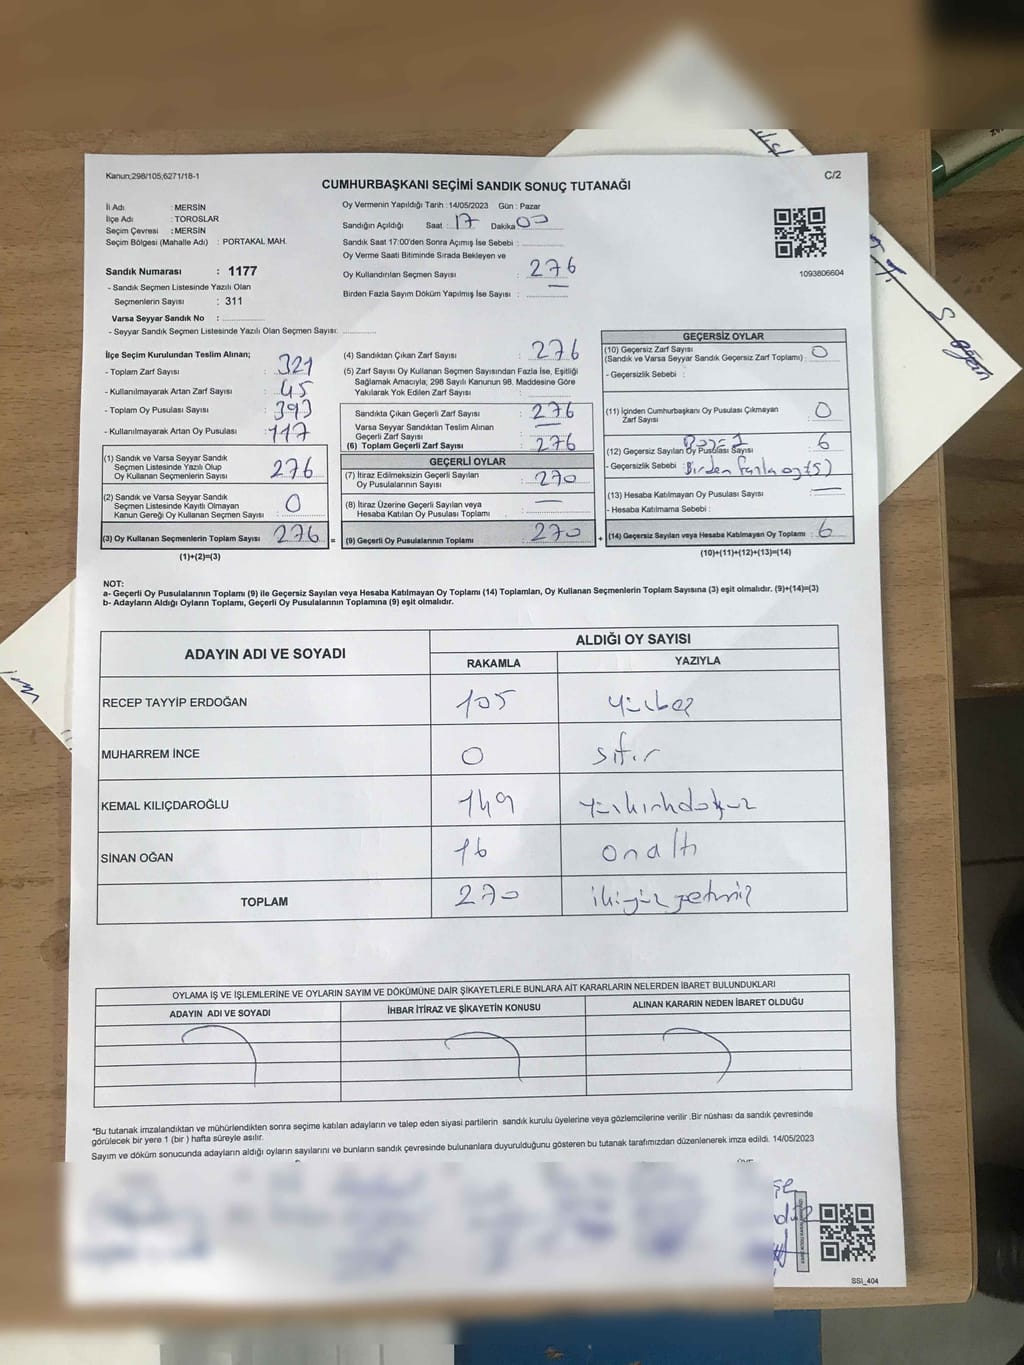 Kanun;298/105;6271/18-1
C/2
CUMHURBAŞKANI SEÇİMİ SANDIK SONUÇ TUTANAĞI
İl Adı : MERSİN
İlçe Adı : TOROSLAR
Seçim Çevresi : MERSİN
Seçim Bölgesi (Mahalle Adı) : PORTAKAL MAH.
Sandık Numarası : 1177
- Sandık Seçmen Listesinde Yazılı Olan
Seçmenlerin Sayısı : 311
Varsa Seyyar Sandık No :
- Seyyar Sandık Seçmen Listesinde Yazılı Olan Seçmen Sayısı:
Oy Vermenin Yapıldığı Tarih :14/05/2023 Gün : Pazar
Sandığın Açıldığı Saat : 17 Dakika 00
Sandık Saat 17:00'den Sonra Açımış İse Sebebi :
Oy Verme Saati Bitiminde Sırada Bekleyen ve
Oy Kullandırılan Seçmen Sayısı : 276
Birden Fazla Sayım Döküm Yapılmış İse Sayısı :
1093806604
İlçe Seçim Kurulundan Teslim Alınan;
- Toplam Zarf Sayısı : 321
- Kullanılmayarak Artan Zarf Sayısı : 45
- Toplam Oy Pusulası Sayısı : 393
- Kullanılmayarak Artan Oy Pusulası : 117
(1) Sandık ve Varsa Seyyar Sandık
Seçmen Listesinde Yazılı Olup
Oy Kullanan Seçmenlerin Sayısı : 276
(2) Sandık ve Varsa Seyyar Sandık
Seçmen Listesinde Kayıtlı Olmayan
Kanun Gereği Oy Kullanan Seçmen Sayısı : 0
(3) Oy Kullanan Seçmenlerin Toplam Sayısı : 276 =
(1)+(2)=(3)
(4) Sandıktan Çıkan Zarf Sayısı : 276
(5) Zarf Sayısı Oy Kullanan Seçmen Sayısından Fazla İse, Eşitliği
Sağlamak Amacıyla; 298 Sayılı Kanunun 98. Maddesine Göre
Yakılarak Yok Edilen Zarf Sayısı :
Sandıkta Çıkan Geçerli Zarf Sayısı : 276
Varsa Seyyar Sandıktan Teslim Alınan
Geçerli Zarf Sayısı :
(6) Toplam Geçerli Zarf Sayısı : 276
GEÇERLİ OYLAR
(7) İtiraz Edilmeksizin Geçerli Sayılan
Oy Pusulalarının Sayısı : 270
(8) İtiraz Üzerine Geçerli Sayılan veya
Hesaba Katılan Oy Pusulası Toplamı : —
(9) Geçerli Oy Pusulalarının Toplamı : 270 +
GEÇERSİZ OYLAR
(10) Geçersiz Zarf Sayısı
(Sandık ve Varsa Seyyar Sandık Geçersiz Zarf Toplamı) : 0
- Geçersizlik Sebebi :
(11) İçinden Cumhurbaşkanı Oy Pusulası Çıkmayan
Zarf Sayısı : 0
(12) Geçersiz Sayılan Oy Pusulası Sayısı : 6
- Geçersizlik Sebebi : Birden fazla oy (5)
(13) Hesaba Katılmayan Oy Pusulası Sayısı : —
- Hesaba Katılmama Sebebi :
(14) Geçersiz Sayılan veya Hesaba Katılmayan Oy Toplamı : 6
(10)+(11)+(12)+(13)=(14)
NOT:
a- Geçerli Oy Pusulalarının Toplamı (9) ile Geçersiz Sayılan veya Hesaba Katılmayan Oy Toplamı (14) Toplamları, Oy Kullanan Seçmenlerin Toplam Sayısına (3) eşit olmalıdır. (9)+(14)=(3)
b- Adayların Aldığı Oyların Toplamı, Geçerli Oy Pusulalarının Toplamına (9) eşit olmalıdır.
ADAYIN ADI VE SOYADI
ALDIĞI OY SAYISI
RAKAMLA YAZIYLA
RECEP TAYYİP ERDOĞAN 105 yüzbeş
MUHARREM İNCE 0 sıfır
KEMAL KILIÇDAROĞLU 149 yüzkırkdokuz
SİNAN OĞAN 16 onaltı
TOPLAM 270 ikiyüzyetmiş
OYLAMA İŞ VE İŞLEMLERİNE VE OYLARIN SAYIM VE DÖKÜMÜNE DAİR ŞİKAYETLERLE BUNLARA AİT KARARLARIN NELERDEN İBARET BULUNDUKLARI
ADAYIN ADI VE SOYADI İHBAR İTİRAZ VE ŞİKAYETİN KONUSU ALINAN KARARIN NEDEN İBARET OLDUĞU
*Bu tutanak imzalandıktan ve mühürlendikten sonra seçime katılan adayların ve talep eden siyasi partilerin sandık kurulu üyelerine veya gözlemcilerine verilir .Bir nüshası da sandık çevresinde
görülecek bir yere 1 (bir ) hafta süreyle asılır.
Sayım ve döküm sonucunda adayların aldığı oyların sayılarını ve bunların sandık çevresinde bulunanlara duyurulduğunu gösteren bu tutanak tarafımızdan düzenlenerek imza edildi. 14/05/2023
SSİ_404